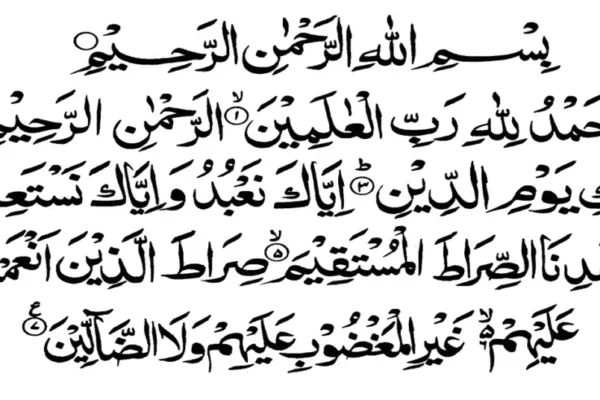 بِسْمِ اللهِ الرَّحْمٰنِ الرَّحِيْمِ
حَمْدُ لِلّٰهِ رَبِّ الْعٰلَمِيْنَ ۙ﴿۱﴾ الرَّحْمٰنِ الرَّحِيْمِ
كِ يَوْمِ الدِّيْنِ ؕ﴿۳﴾ اِيَّاكَ نَعْبُدُ وَاِيَّاكَ نَسْتَعِ
دِنَا الصِّرَاطَ الْمُسْتَقِيْمَ ۙ﴿۵﴾ صِرَاطَ الَّذِيْنَ اَنْعَمْ
عَلَيْهِمْ ۙ۬ غَيْرِ الْمَغْضُوْبِ عَلَيْهِمْ وَلَا الضَّآلِّيْنَ ﴿۷﴾